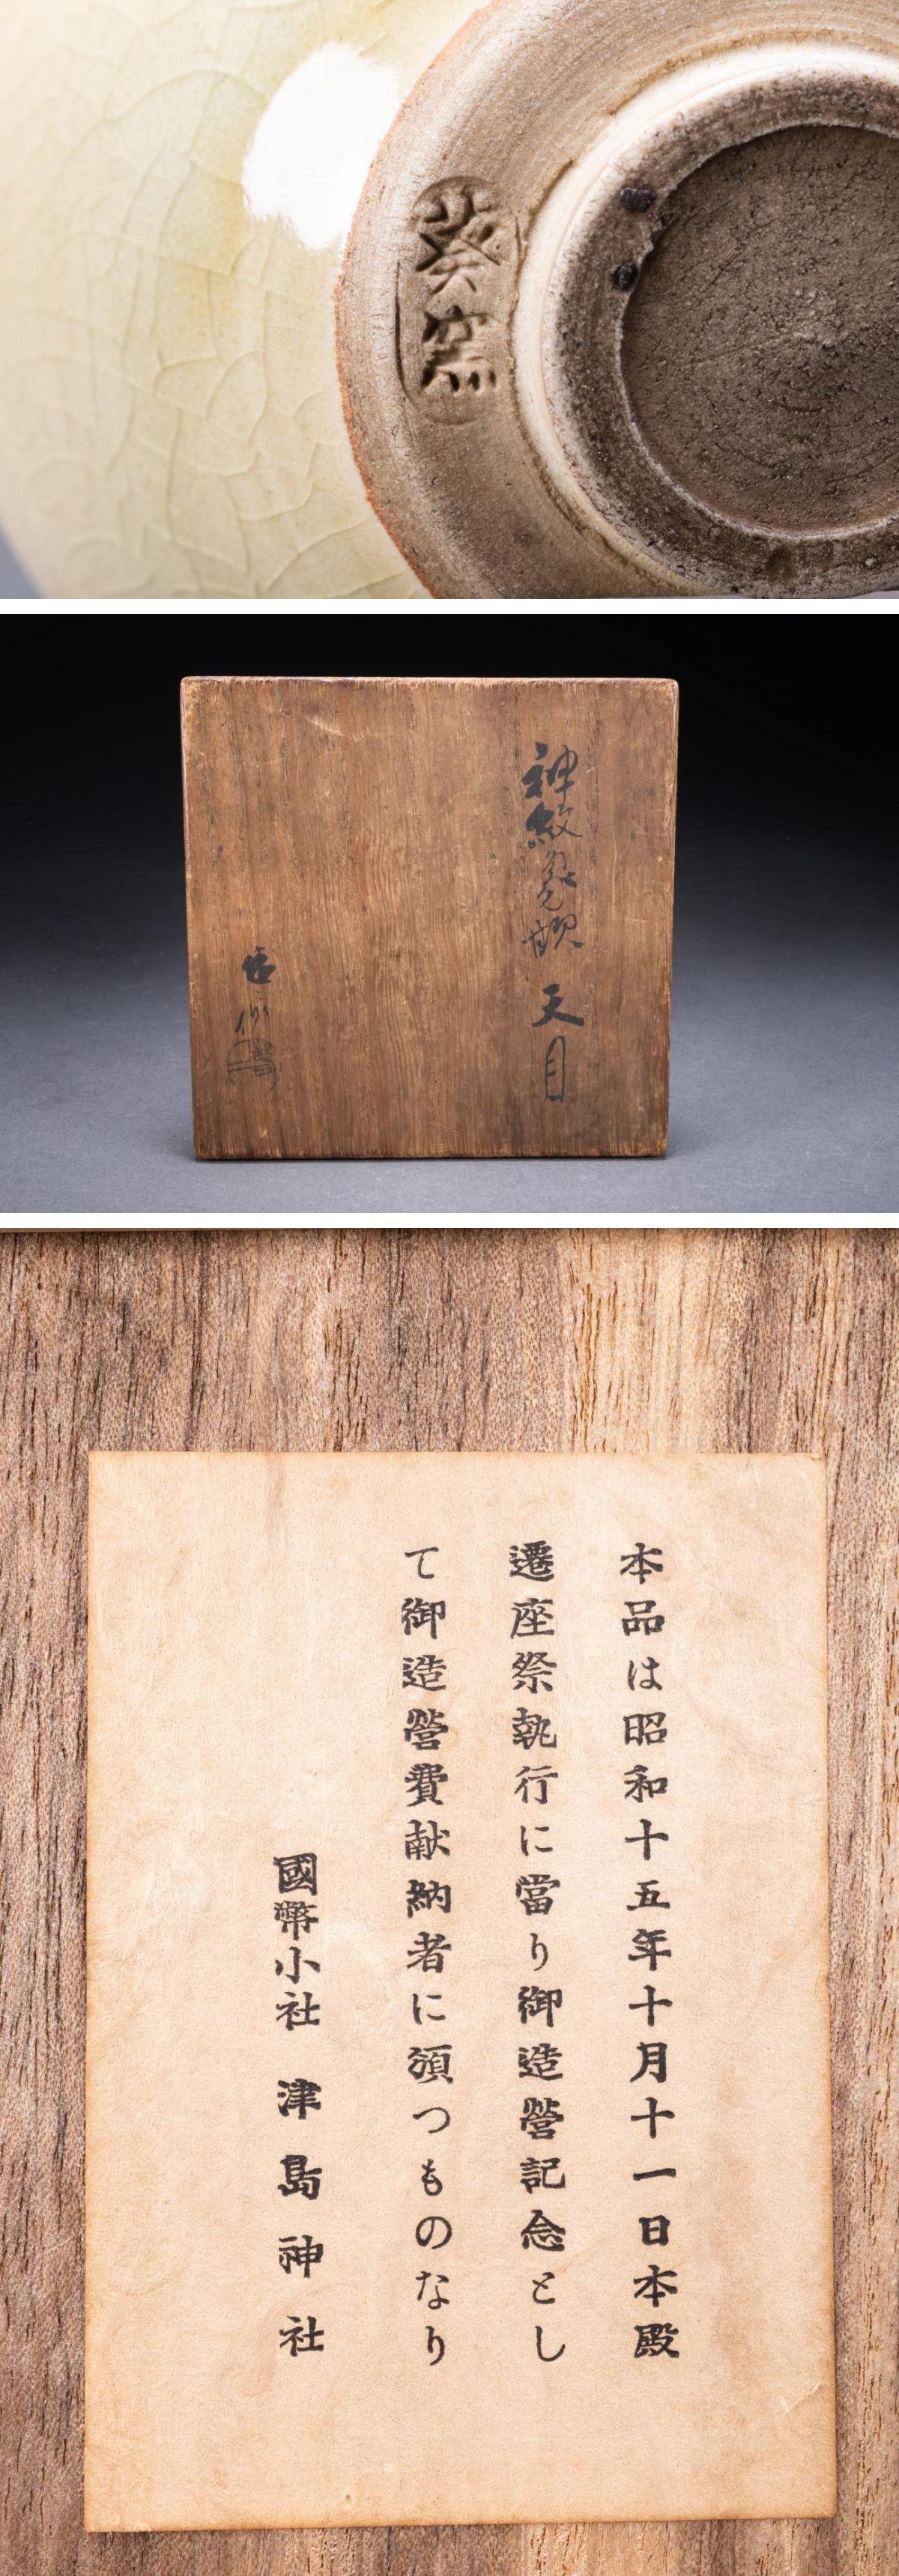 葵窯
神紋
天目
作
本品は昭和十五年十月十一日本殿
遷座祭執行に當り御造營記念とし
て御造營費献納者に頒つものなり
國幣小社 津島神社